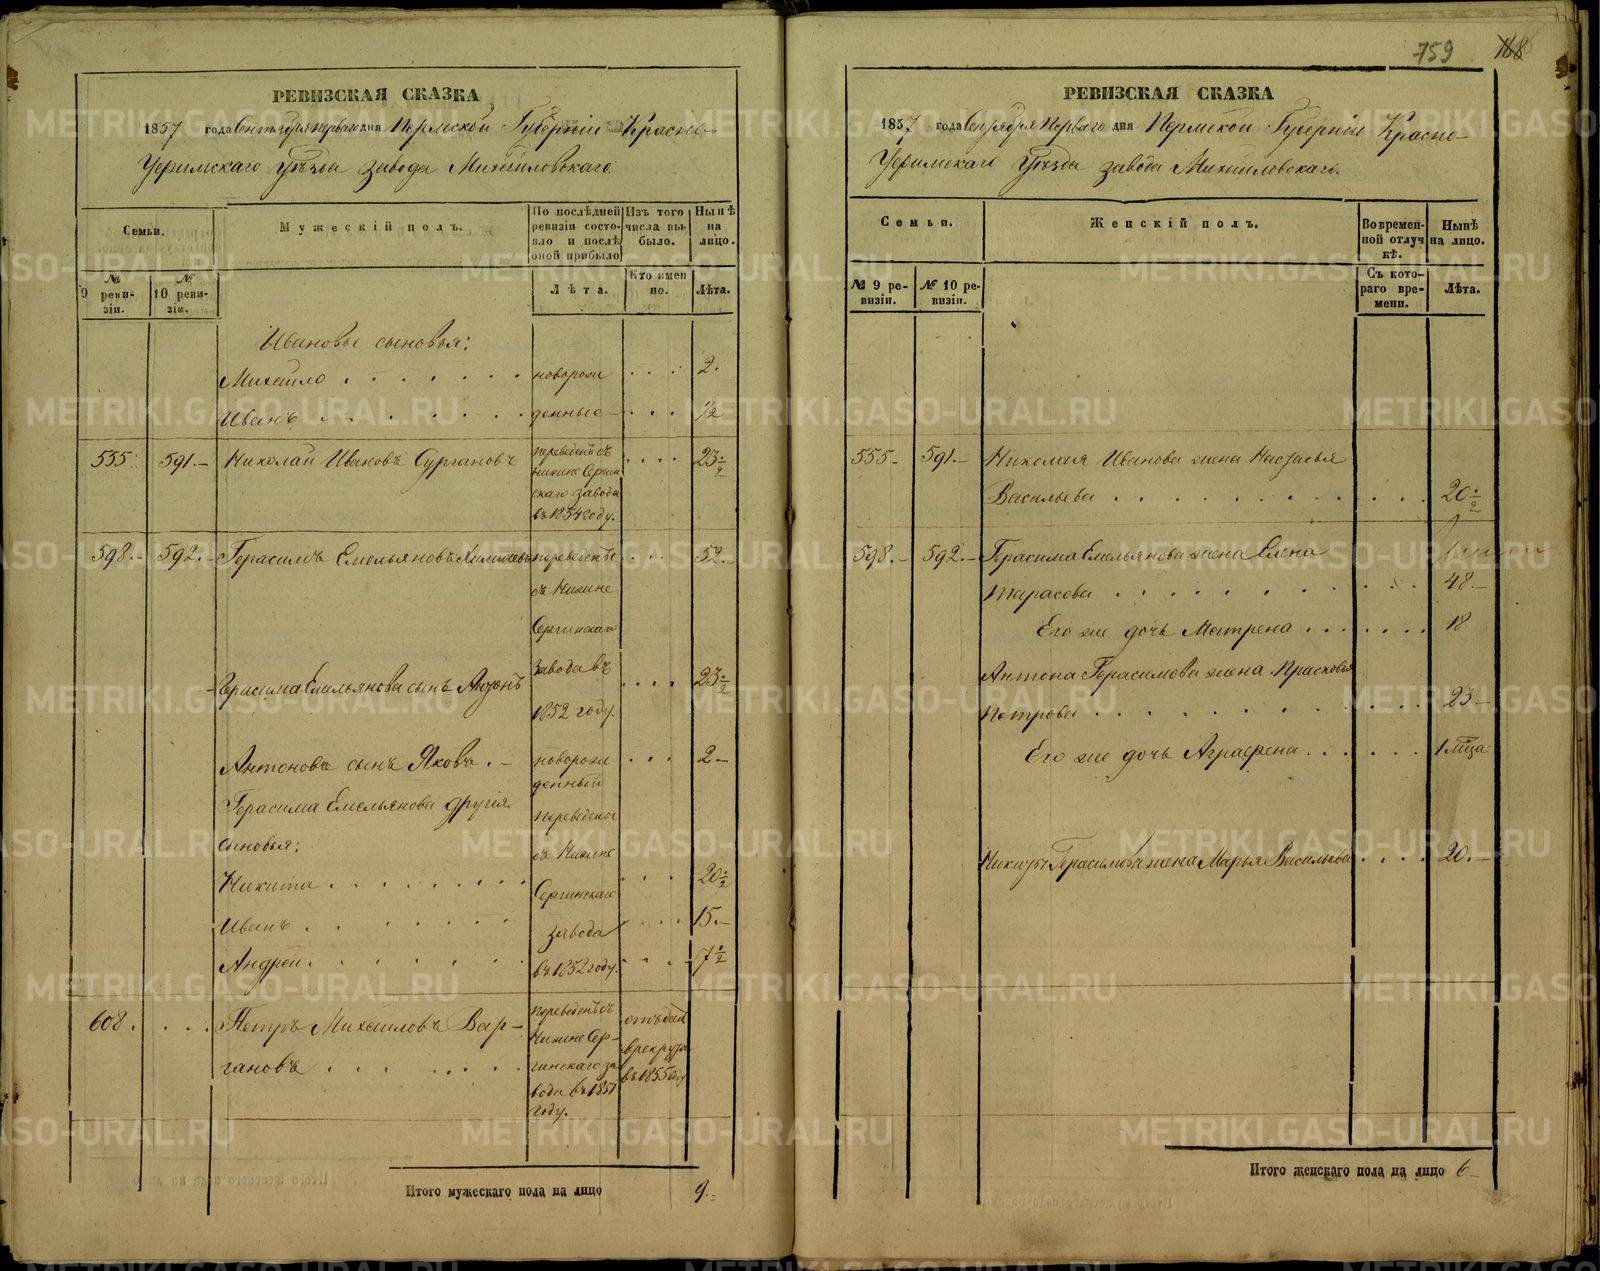 759 168
РЕВИЗСКАЯ СКАЗКА
1857 года Сентября перваго дня Пермской Губерніи Красно-
Уфимскаго Уѣзда завода Михайловскаго.
Семьи.
Мужескій полъ.
По послѣдней ревизіи состояло и послѣ оной прибыло
Изъ того числа выбыло.
Нынѣ на лицо.
№ 9 ревизіи.
№ 10 ревизіи.
Лѣта.
Кто именно.
Лѣта.
Ивановы сыновья:
Михайло . . . . . . . новорож . . . 2.
Иванъ . . . . . . . денные . . . 1/2
555 591.- Николай Ивановъ
переведенъ съ . . . . 23 1/2
Нижне Сергин
скаго завода
въ 1854 году.
598.- 592.- Герасимъ Емельяновъ переведенъ . . . 52.-
съ Нижне
Сергинскаго
завода въ
Герасима Емельянова сынъ Антонъ . . . . 23 1/2
1852 году.
Антоновъ сынъ Яковъ . - новорож . . . 2 -
денный
Герасима Емельянова другія переведены
сыновья: съ Нижне
Никита . . . . . . . . . . . . 20 1/2
Сергинскаго
Иванъ . . . . . . завода . . . 15.-
Андрей . . . . . . въ 1852 году. . . . 7 1/2
608. . . . Петръ Михайловъ Вар-
гановъ . . . . . . . .
переведенъ съ
Нижне Сер-
гинскаго за
вода въ 1851
году.
отъдан
в рекруты
въ 1855 году
Итого мужескаго пола на лицо 9.-
РЕВИЗСКАЯ СКАЗКА
1857 года Сентября Перваго дня Пермской Губерніи Красно-
Уфимскаго Уѣзда завода Михайловскаго.
Семьи.
Женскій полъ.
Во временной отлучкѣ.
Нынѣ на лицо.
№ 9 ревизіи.
№ 10 ревизіи.
Съ котораго времени.
Лѣта.
555- 591.- Николая Иванова жена Настасья
Васильева . . . . . . . . . . . . 20 1/2
598.- 592.- Герасима Емельянова жена Елена
Тарасова . . . . . . . . . . . . 48.-
Его же дочь Матрена . . . . . . . 18
Антона Герасимова жена Прасковья
Петрова . . . . . . . . . . . . 23 -
Его же дочь Аграфена . . . . . . 1 мѣца
Никиты Герасимова жена Марья Васильева . . . . 20.-
Итого женскаго пола на лицо 6-
METRIKI.GASO-URAL.RU